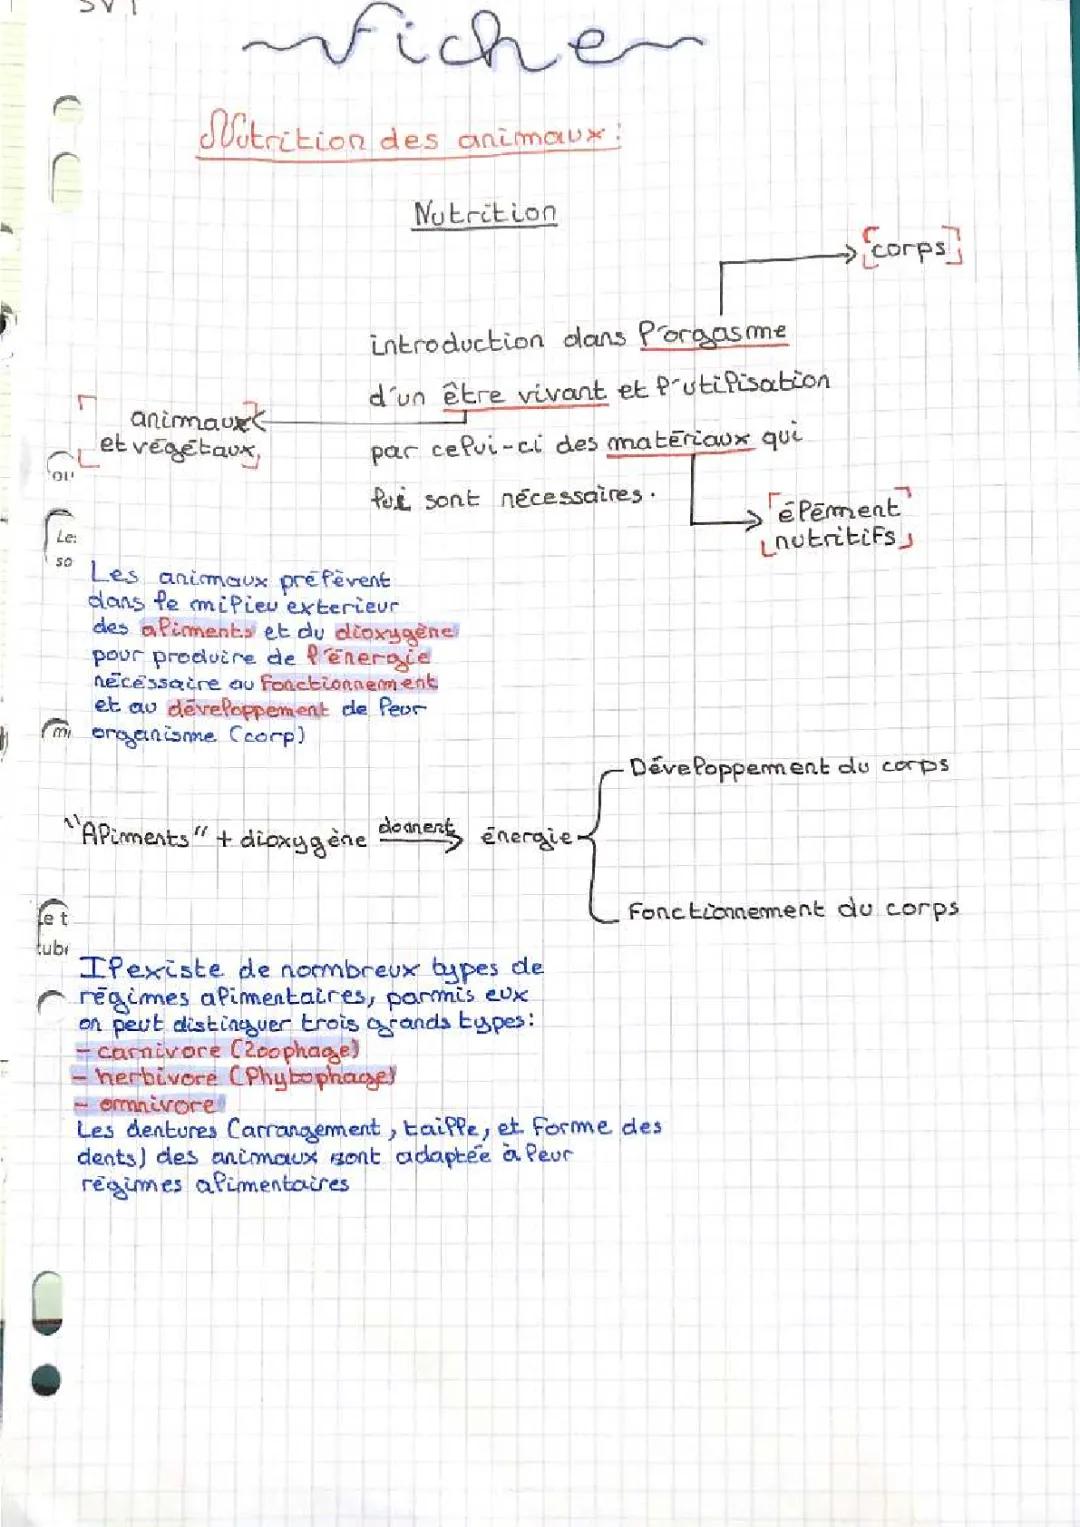 SVT
Fiche
Nutrition des animaux:
Nutrition
corps
introduction dans l'orgasme
d'un être vivant et l'utilisation
animaux
et végétaux,
par celui-ci des matériaux qui
lui sont nécessaires.
élément
nutritifs
ou
Le:
so
Les animaux prélèvent
dans le milieu exterieur
des aliments et du dioxygène
pour produire de l'énergie
nécéssaire au fonctionnement
et au développement de leur
mi
organisme (corp)
Développement du corps
"Aliments" + dioxygène donnent énergie
Fonctionnement du corps
le t
tube
Il existe de nombreux types de
régimes alimentaires, parmis eux
on peut distinguer trois grands types:
- carnivore (Zoophage)
- herbivore (Phytophage)
- omnivore
Les dentures (arrangement, taille, et forme des
dents) des animaux sont adaptée à leur
régimes alimentaires